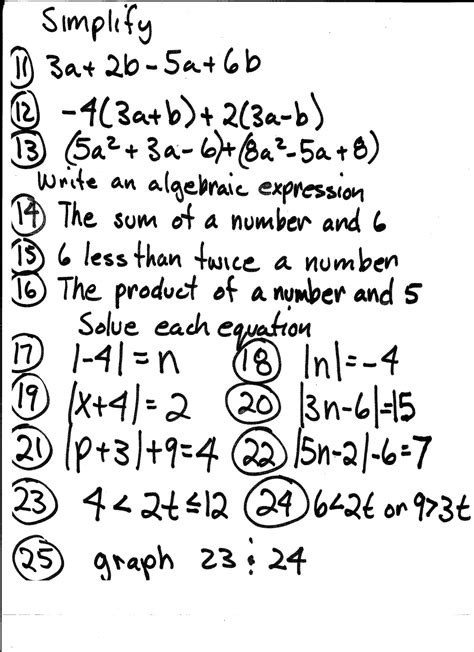 Simplify
11 3a + 2b - 5a + 6b
12 -4(3a+b) + 2(3a-b)
13 (5a² + 3a - 6)+(8a² - 5a + 8)
Write an algebraic expression
14 The sum of a number and 6
15 6 less than twice a number
16 The product of a number and 5
Solve each equation
17 |-4| = n 18 |n| = -4
19 |x+4| = 2 20 |3n-6|=15
21 |p+3|+9=4 22 |5n-2|-6=7
23 4 < 2t ≤ 12 24 6<2t or 9>3t
25 graph 23 & 24